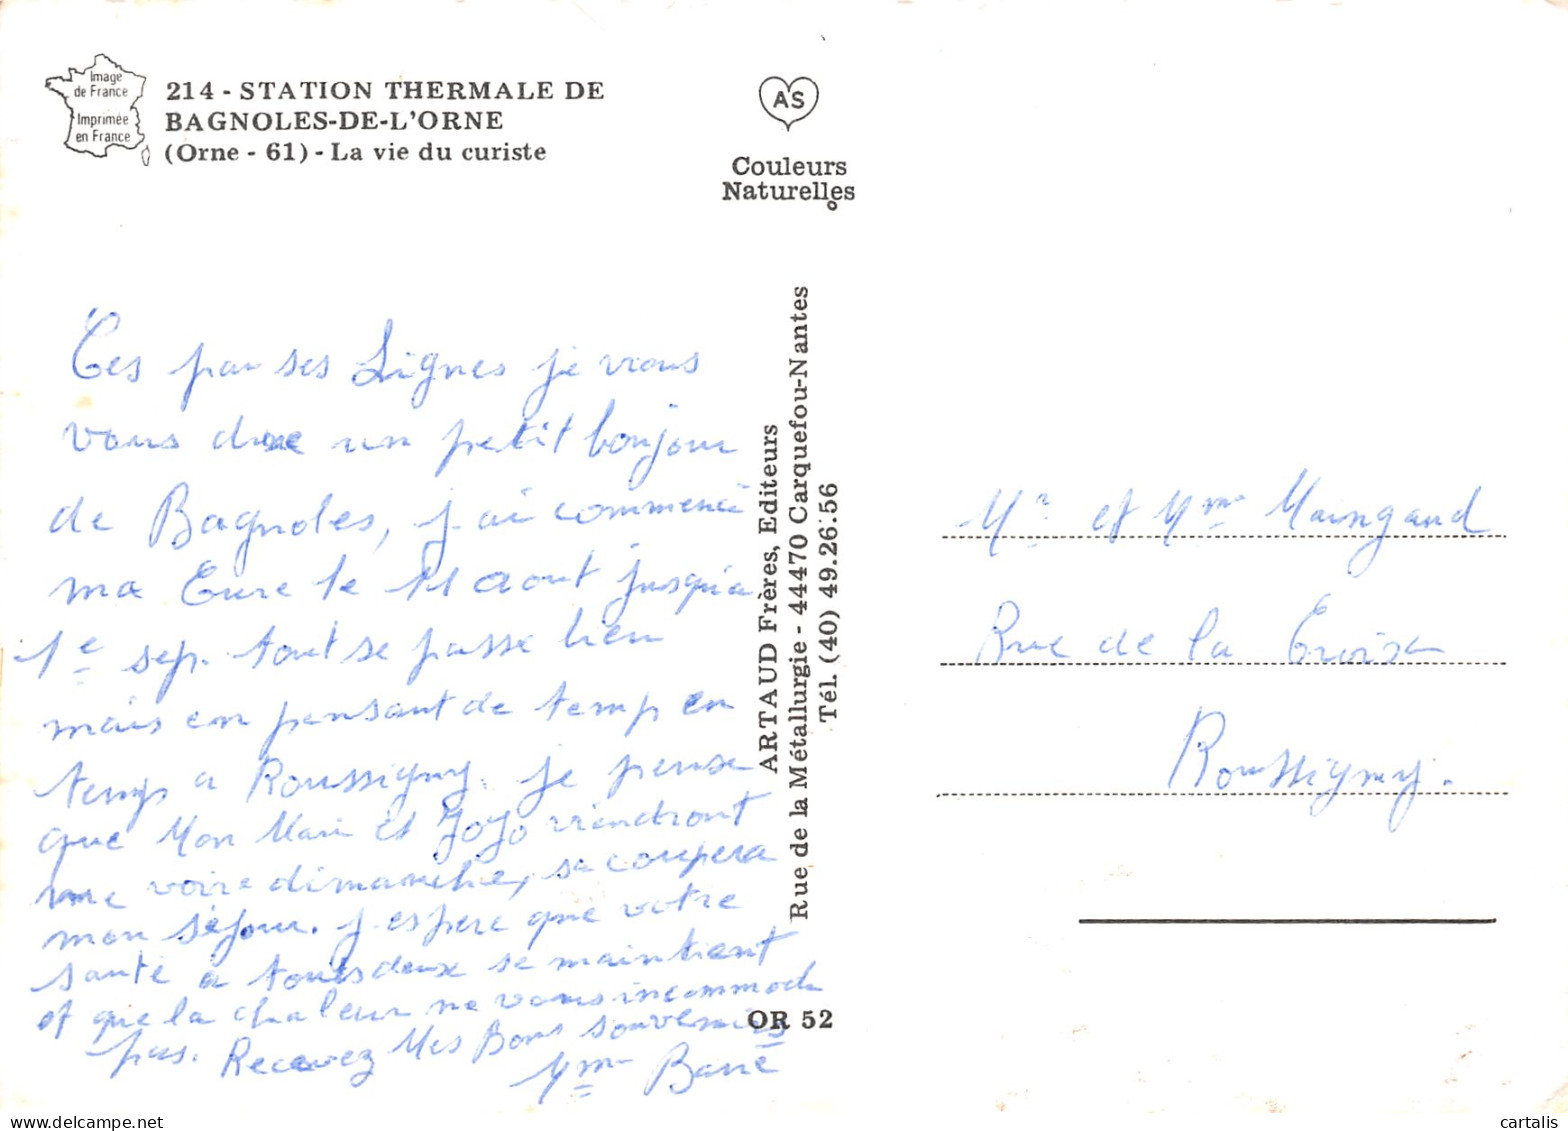 Image
de France
Imprimée
en France
214 - STATION THERMALE DE
BAGNOLES-DE-L'ORNE
(Orne - 61) - La vie du curiste
AS
Couleurs
Naturelles
Ces par ses Lignes je vous
vous dire un petit bonjour
de Bagnoles, j ai commencé
ma Cure le 11 aout jusqu'a
1e sep. tout se passe bien
mais en pensant de temp en
temps a Roussigny. je pense
que Mon Mari et JoJo viendront
me voire dimanche, sa coupera
mon séjour. j espere que votre
santé a tousdeux se maintient
et que la chaleur ne vous incommode
pas. Recevez Mes Bons Souvenirs
Mme Barré
ARTAUD Frères, Editeurs
Rue de la Métallurgie - 44470 Carquefou-Nantes
Tél. (40) 49.26.56
OR 52
Mr et Mme Maingaud
Rue de la Croix
Roussigny.
cartalis